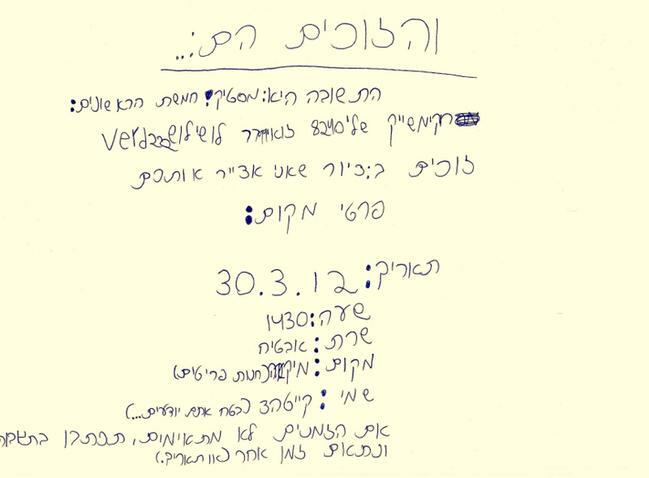 והזוכים הם:...
התשובה היא: מסטיק! חמשת הראשונים:
זוכים ב:ציור שאני אצייר אותכם
פרטי מקום:
תאריך: 30.3.12
שעה: 1430
שרת: אבטיח
מקום: (חנות פריטים)
שמי: קייטהצ (בטח אתם יודעים...)
אם הזמנים לא מתאימים, תכתבו בתגובה
ונתאים זמן אחר (או תאריך.)